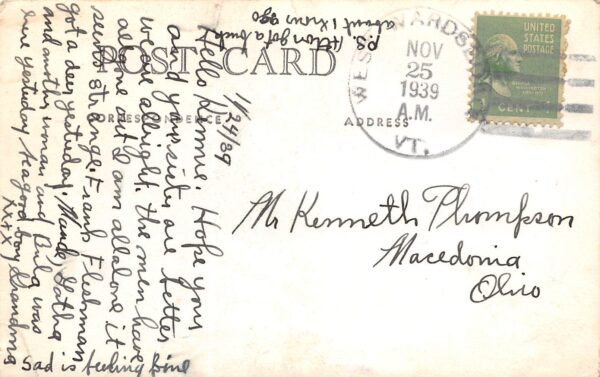 POST CARD
CORRESPONDENCE
ADDRESS
11/24/39
Hello Kennie. Hope you
and your sister are better
we are allright. the men have
all gone out I am all alone it
seems strange. Frank Fleshman
got a deer yesterday.
and mother, urman and
here yesterday be a good boy Grandma
XXXX
Sad is feeling fine
P.S. Alton got a buck
about 1 hour ago
WEST
VT.
NOV
25
1939
A.M.
UNITED
STATES
POSTAGE
1 CENT 1
Mr Kenneth Thompson
Macedonia
Ohio